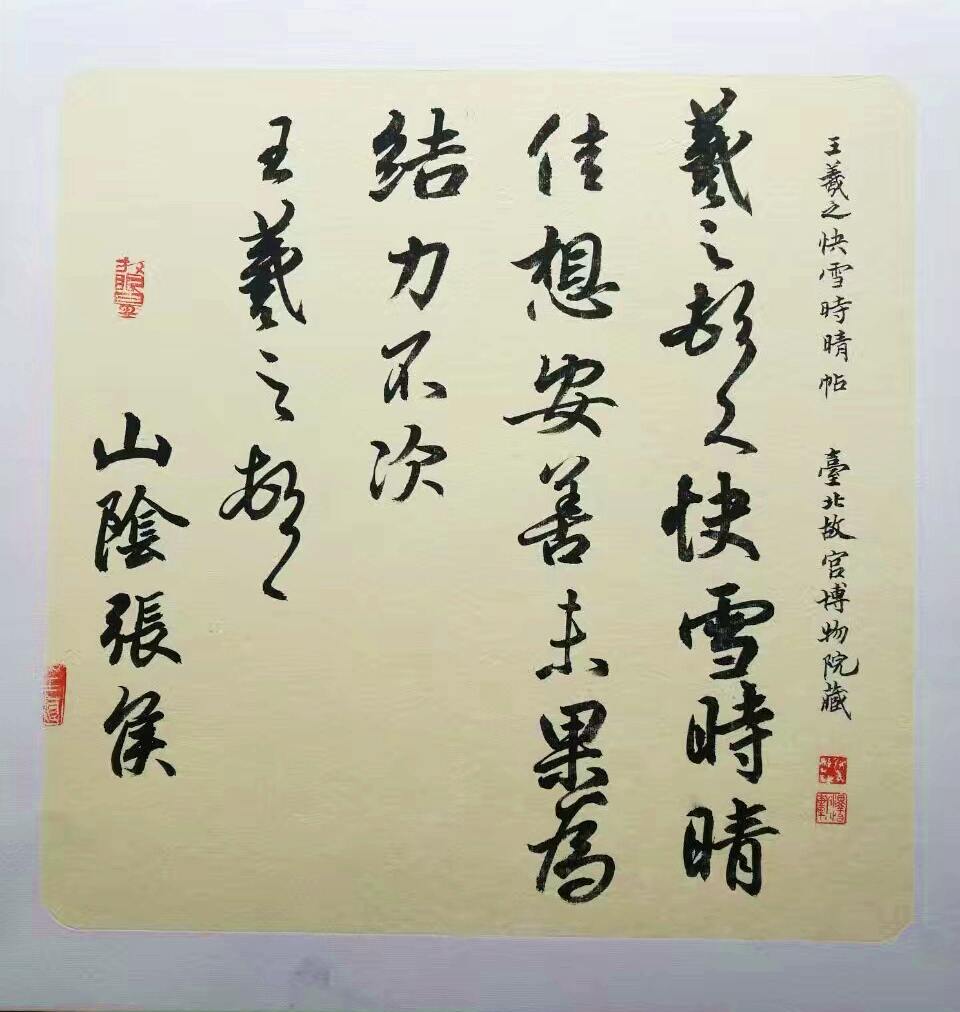 王羲之快雪時晴帖 臺北故宮博物院藏
羲之頓久快雪時晴
佳想安善未果為
結力不次
王羲之頓
山陰張侯